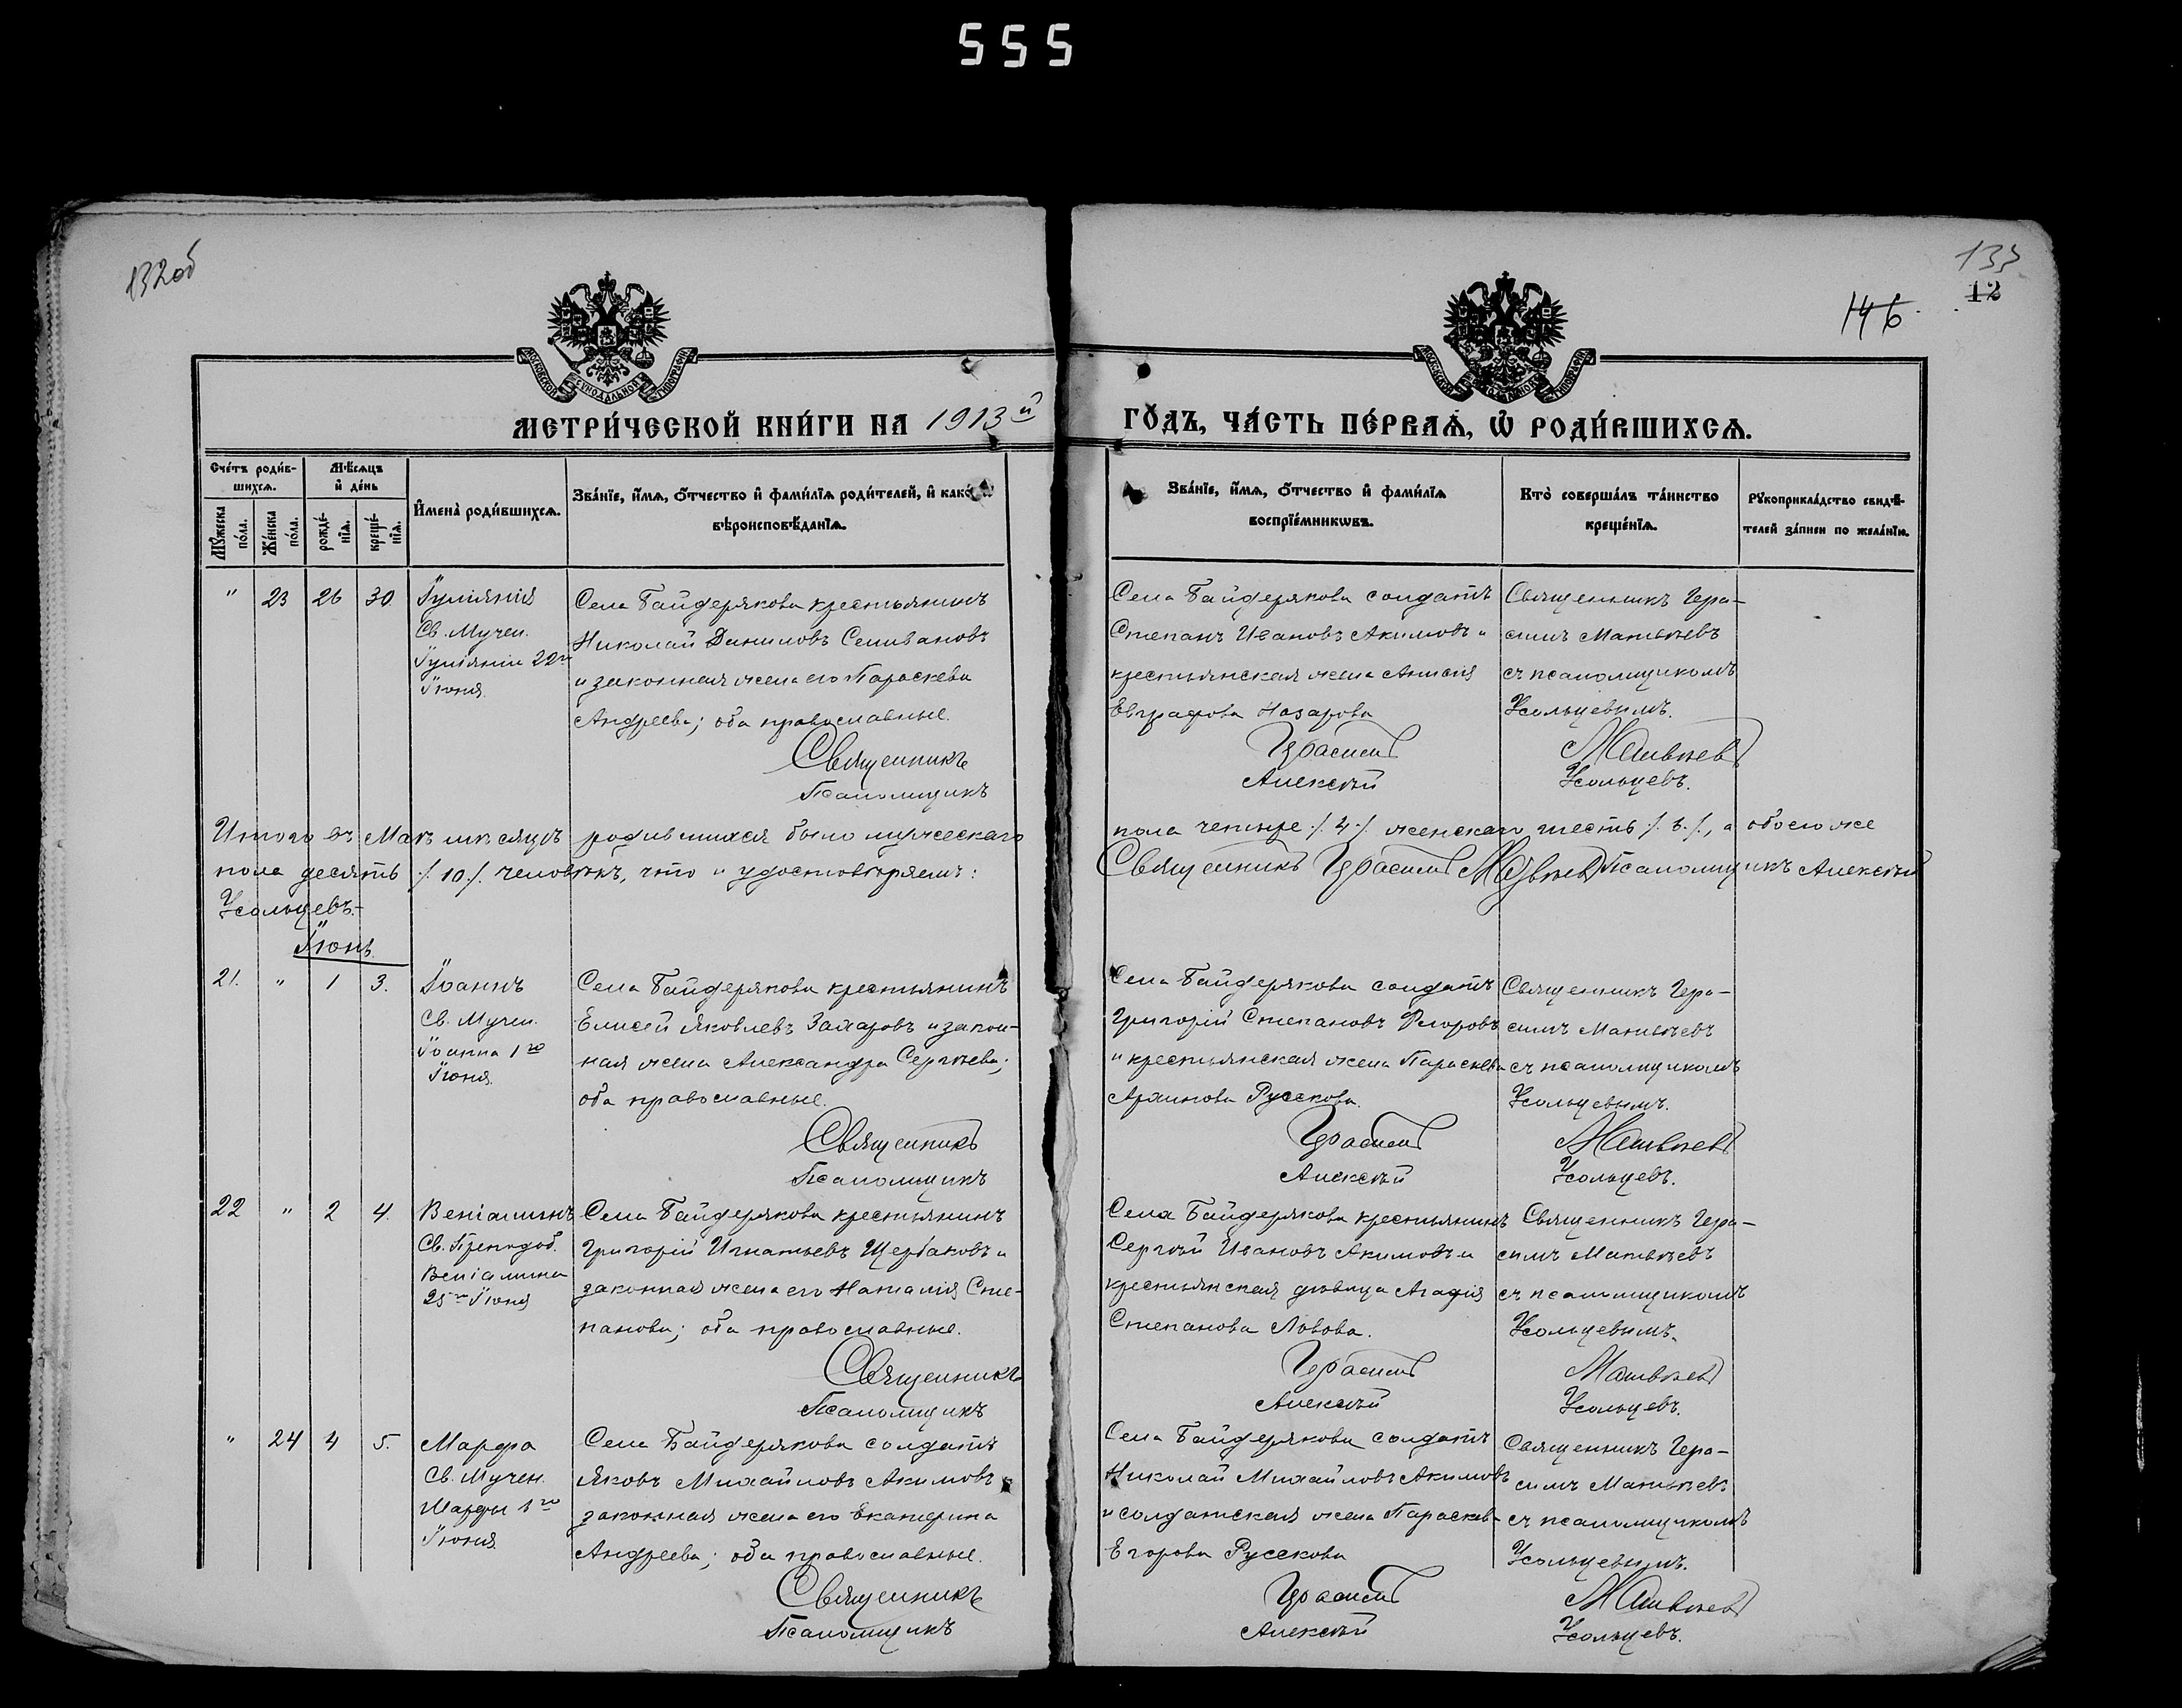 555
132об
133
12
146
МОСКОВСКОЙ СѴНОДАЛЬНОЙ ТИПОГРАФІИ
МОСКОВСКОЙ СѴНОДАЛЬНОЙ ТИПОГРАФІИ
МЕТРИ́ЧЕСКОЙ КНИ́ГИ НА 1913й
ГО́ДЪ, ЧА́СТЬ ПЕ́РВАѦ, Ѡ҆ РОДИ́ВШИХСѦ.
Сче́тъ роди́в-
шихсѧ.
Мꙋ́жеска по́ла.
Же́нска по́ла.
Мѣ́сѧцъ
и҆ де́нь
рожде́-нїѧ.
креще́-нїѧ.
И҆мена̀ роди́вшихсѧ.
Зва́нїе, и҆́мѧ, ѻ҆́тчество и҆ фами́лїѧ роди́телей, и҆ како́гѡ
вѣроисповѣ́данїѧ.
Зва́нїе, и҆́мѧ, ѻ҆́тчество и҆ фами́лїѧ
воспрїе́мникѡвъ.
Кто̀ соверша́лъ та́инство
креще́нїѧ.
Рꙋкоприкла́дство свидѣ́-
телей за́писи по жела́нїю.
" 23 26 30
Іуліанія
Св. Мучен.
Іуліаніи 22го
Іюня
Села Байдерякова крестьянинъ
Николай Даниловъ Селивановъ
и законная жена его Параскева
Андреева; оба православные.
Священникъ
Псаломщикъ
Села Байдерякова солдатъ
Степанъ Ивановъ Акимовъ и
крестьянская жена Анисія
Евграфова Назарова
Герасимъ
Алексѣй
Священникъ Гера-
симъ Матвѣевъ
съ псаломщикомъ
Усольцевымъ.
Матвѣевъ
Усольцевъ.
Итого въ Маѣ мѣсяцѣ родившихся было мужескаго пола четыре /. 4 ./. женскаго шесть /. 6 ./., а обоего же
пола десять /. 10 ./. человѣкъ, что и удостовѣряемъ: Священникъ Герасимъ Матвѣевъ Псаломщикъ Алексѣй
Усольцевъ.
Іюнь
21. " 1 3.
Іоаннъ
Св. Мучен.
Іоанна 1го
Іюня
Села Байдерякова крестьянинъ
Елисей Яковлевъ Захаровъ и закон-
ная жена Александра Сергѣева;
оба православные.
Священникъ
Псаломщикъ
Села Байдерякова солдатъ
Григорій Степановъ Ѳедоровъ
и крестьянская жена Параскева
Архипова Русскова.
Герасимъ
Алексѣй
Священникъ Гера-
симъ Матвѣевъ
съ псаломщикомъ
Усольцевымъ.
Матвѣевъ
Усольцевъ.
22 " 2 4.
Веніаминъ
Св. Преподоб.
Веніамина
25го Іюня
Села Байдерякова крестьянинъ
Григорій Игнатьевъ Щербаковъ и
законная жена его Наталія Сте-
панова; оба православные.
Священникъ
Псаломщикъ
Села Байдерякова крестьянинъ
Сергѣй Ивановъ Акимовъ и
крестьянская дѣвица Агафія
Степанова Ловова.
Герасимъ
Алексѣй
Священникъ Гера-
симъ Матвѣевъ
съ псаломщикомъ
Усольцевымъ.
Матвѣевъ
Усольцевъ.
" 24 4 5.
Марфа
Св. Мучен.
Марфы 1го
Іюня
Села Байдерякова солдатъ
Яковъ Михайловъ Акимовъ и
законная жена его Екатерина
Андреева; оба православные.
Священникъ
Псаломщикъ
Села Байдерякова солдатъ
Николай Михайловъ Акимовъ
и солдатская жена Параскев-
Егорова Русскова
Герасимъ
Алексѣй
Священникъ Гера-
симъ Матвѣевъ
съ псаломщикомъ
Усольцевымъ.
Матвѣевъ
Усольцевъ.